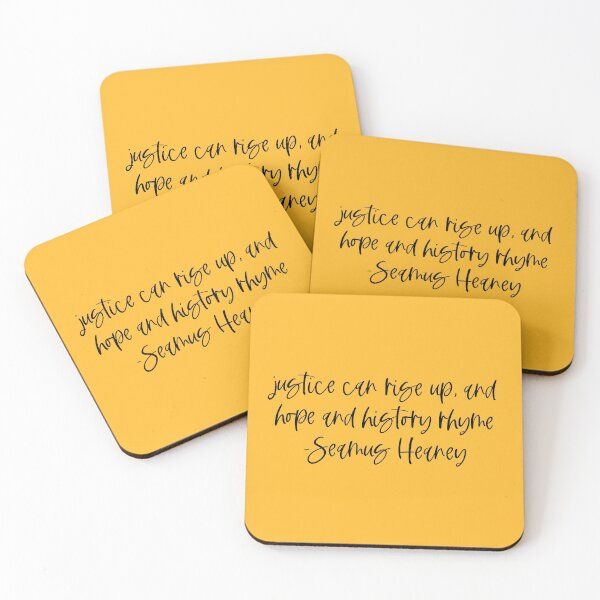 justice can rise up, and
hope and history rhy
aney
justice can rise up, and
hope and history rhyme
-Seamus Heaney
justice can rise up, and
hope and history rhyme
-Seamus Hea
justice can rise up, and
hope and history rhyme
-Seamus Heaney